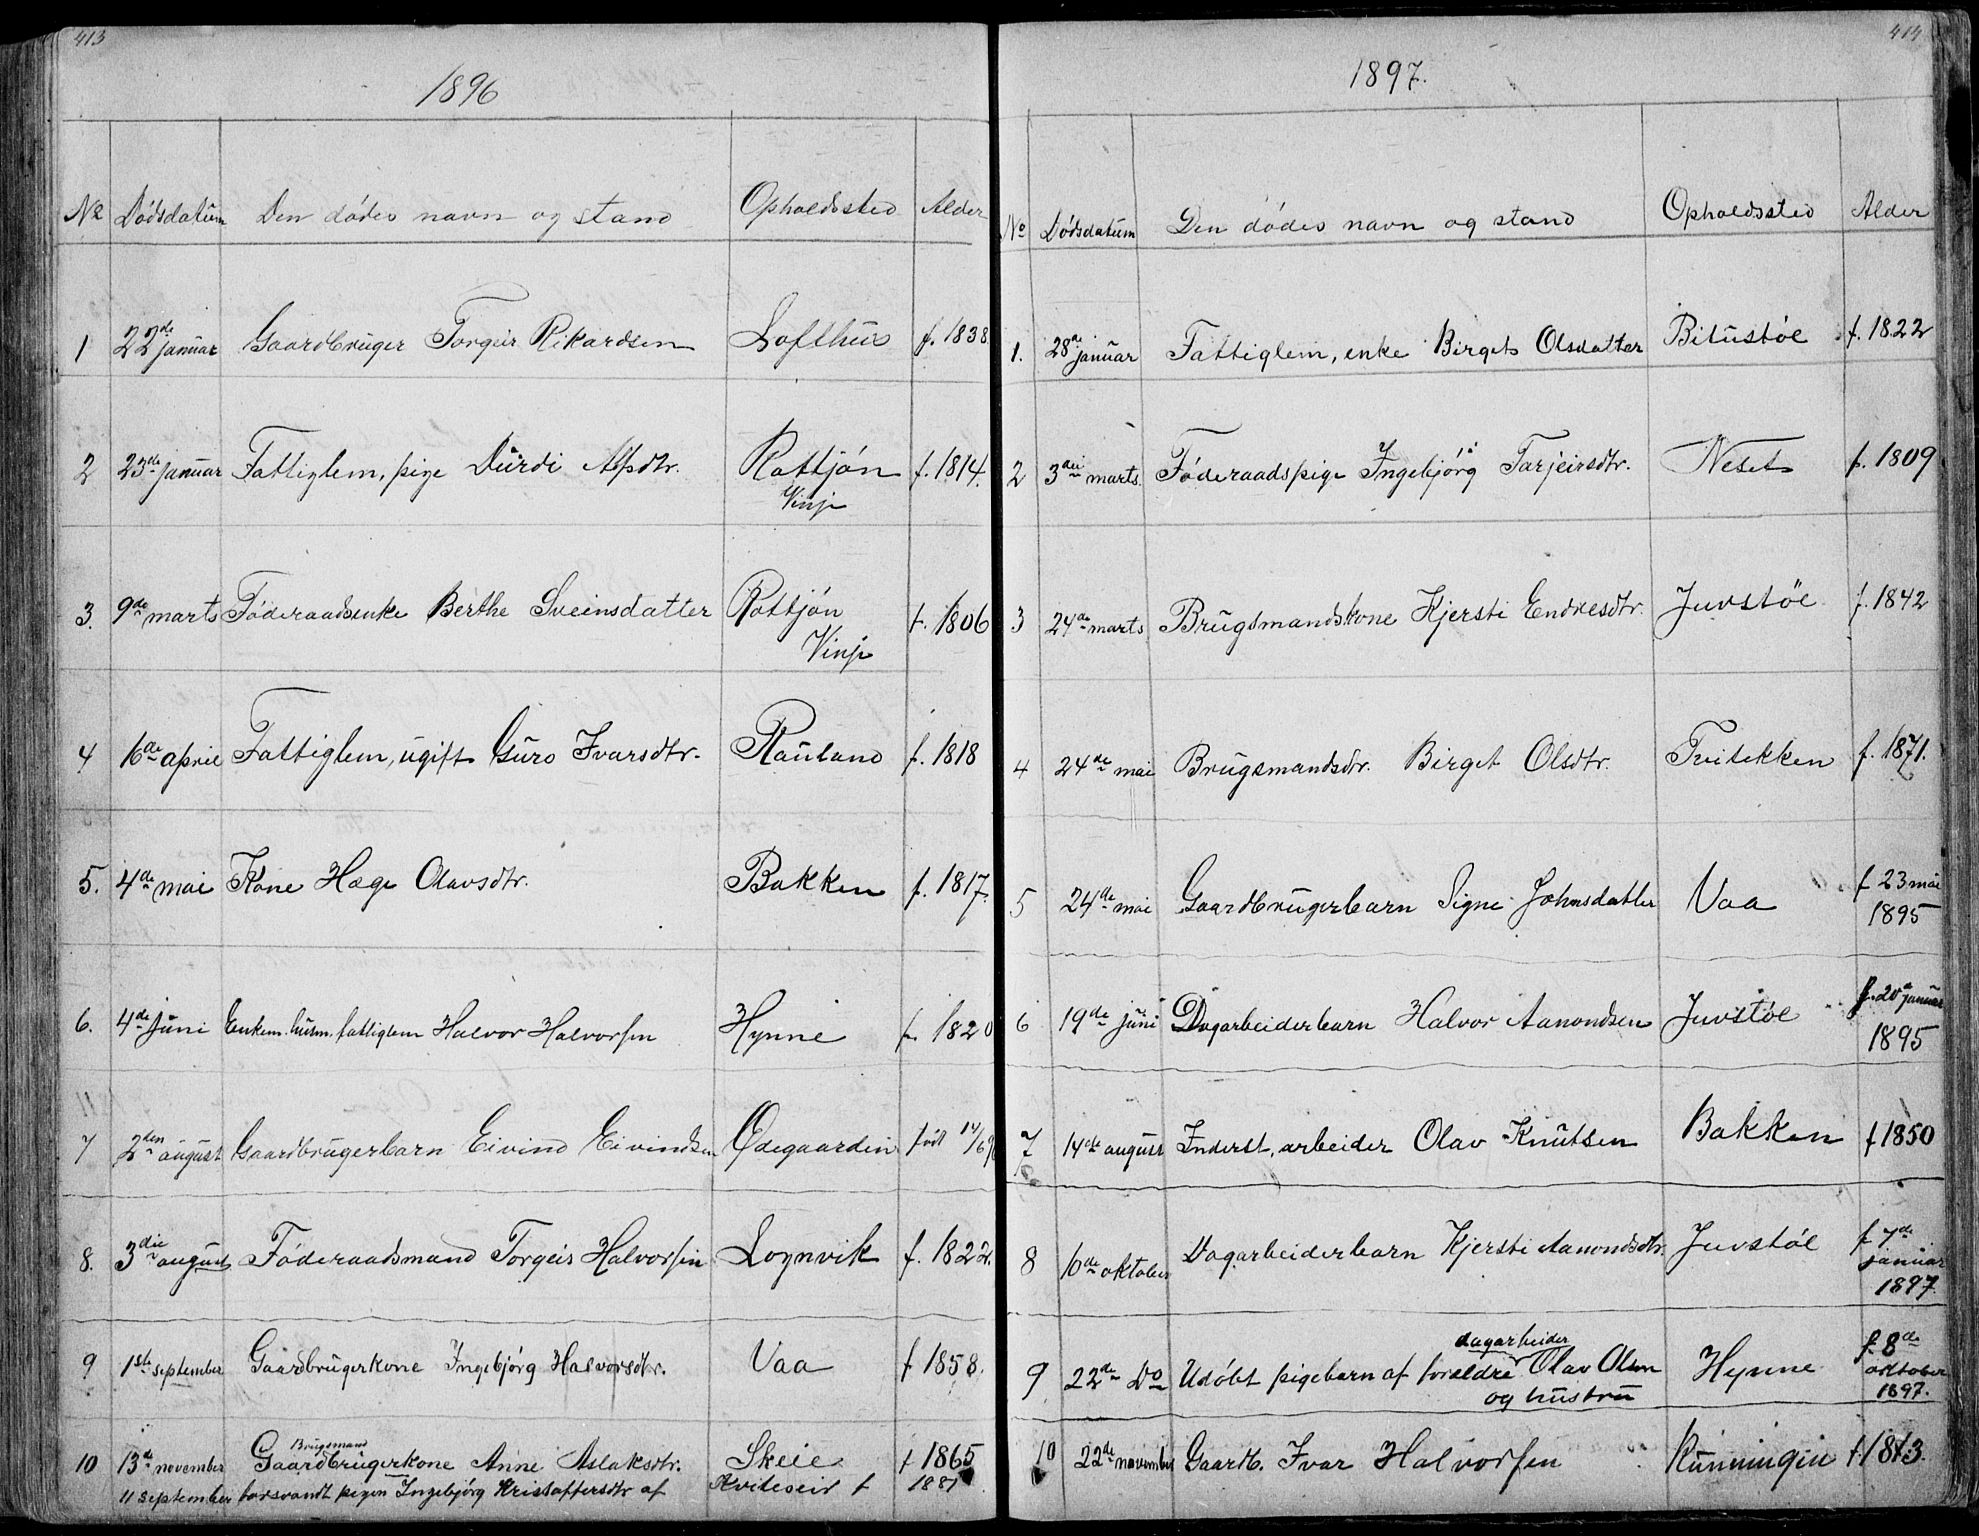 413
1896
No Dødsdatum Den dødes navn og stand Opholdssted Alder
1 22de januar Gaardbruger Torgeir Rikardsen Lofthus f. 1838
2 23de januar Fattiglem, pige Durdi Alfsdtr. Rottjøn f. 1814.
Vinje
3. 9de marts Føderaadsenke Berthe Sveinsdatter Rottjøn f. 1806
Vinje
4 16de april Fattiglem, ugift Guro Ivarsdtr. Rauland f. 1818
5. 4de mai Kone Hæge Olavsdtr. Bakken f. 1817.
6. 4de juni Enkem. husm. fattiglem Halvor Halvorsen Hynne f. 1820
7 2den august Gaardbrugerbarn Eivind Eivindsen Ødegaarden født 14/6
8. 3die august Føderaadsmand Torgeir Halvorsen Lognvik f. 1822.
9 1ste september Gaardbrugerkone Ingebjørg Halvorsdtr. Vaa f 1858.
Brugsmand
10 13de november Gaardbrugerkone Anne Aslaksdtr. Skeie f 1865
11 september forsvandt pigen Ingebjørg Kristoffersdtr af Kviteseid f 1881
414
1897.
No Dødsdatum Den dødes navn og stand Opholdssted Alder
1. 28de januar Fattiglem, enke Birget Olsdatter Bitustøl f. 1822
2 3die marts. Føderaadspige Ingebjørg Tarjeirsdtr. Neset f. 1809
3 24de marts Brugsmandskone Kjersti Endresdtr. Juvstøl f. 1842
4 24de mai Brugsmandsdtr. Birget Olsdtr. Tvitekken f. 1871.
5 24de mai Gaardbrugerbarn Signe Johnsdatter Vaa f 23 mai
1895
6 19de juni Dagarbeiderbarn Halvor Aamondsen Juvstøl f. 20de januar
1895
7 14de august Inderst, arbeider Olav Knutsen Bakken f 1850
8 6de oktober Dagarbeiderbarn Kjersti Aamondsdtr. Juvstøl f 7de
januar
1897
dagarbeider
9 22de Do Udøbt pigebarn af forældre Olav Olsen Hynne f. 8de
og hustru oktober
1897.
10 22de november Gaardb. Ivar Halvorsen Runningen f 1813.